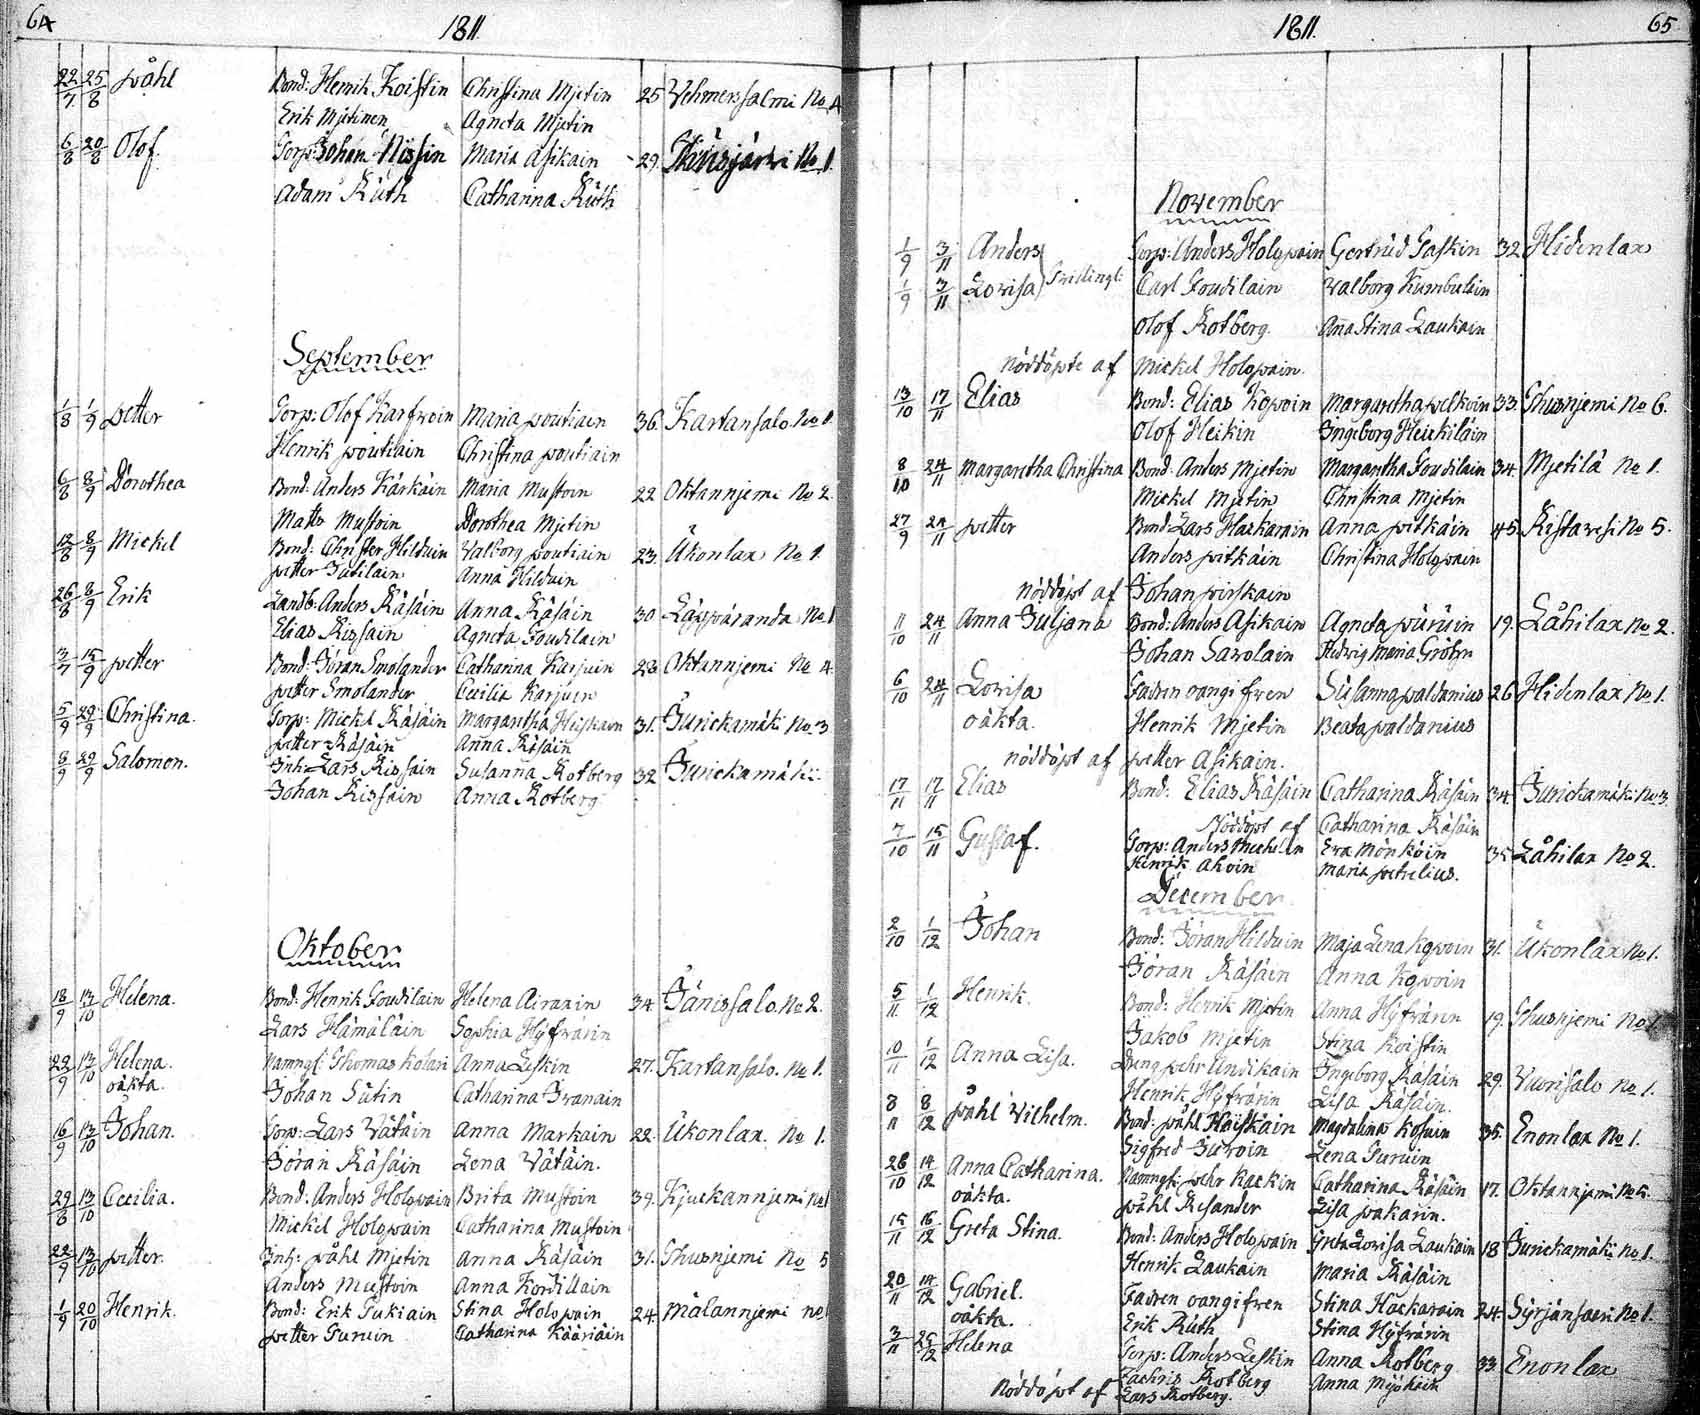 64
1811.
22/7 25/8 påhl Bond: Henrik Koistin Christina Mjetin 25 Vehmersalmi No 4
Erik Mjetinen Agneta Mjetin
6/8 20/8 Olof. Torp: Johan Nissin Maria Asikain 29. No 1.
Adam Rúth Catharina Rúth
September
1/8 1/9 petter Torp: Olof Karfwin Maria poutiain 36. Kartansalo. No 1.
Henrik poutiain Christina poutiain
6/8 8/9 Dorothea Bond: Anders Kärkäin Maria Mustoin 22 Oktannjemi No 2.
Matts Mustoin Dorothea Mjetin
12/8 8/9 Mickel Bond: Christer Hilduin Valborg poutiain 23. Ukonlax No 1
petter Jätiläin Anna Hilduin
26/8 8/9 Erik Landb: Anders Räsäin Anna Räsäin 30 Läppäranda No 1
Elias Rissain Agneta Toudilain
3/7 15/9 petter Bond: Jöran Smolander Catharina Karjuin 28 Oktannjemi No 4.
petter Smolander Cecilia Karjuin
5/9 29/9 Christina. Torp: Mickel Räsäin Margaretha Heiskain 31. Jurickamäki No 3
petter Räsäin Anna Räsäin
8/9 29/9 Salomon. Inh: Lars Rissain Susanna Rotberg 32 Jurickamäki
Johan Rissäin Anna Rotberg
Oktober
18/9 13/10 Helena. Bond: Henrik Toudilain Helena Airaxin 34. Jänissalo No 2.
Lars Hämäläin Sophia Hyfvärin
22/9 13/10 Helena. Namngf: Thomas Kolari Anna Leskin 27. Kartansalo. No 1.
oäkta. Johan Sutin Catharina Ivanain
16/9 13/10 Johan. Torp: Lars Wätäin Anna Markain 22. Ukonlax. No 1.
Jöran Räsäin Lena Wätäin.
29/8 13/10 Cecilia. Bond: Anders Holopain Brita Mustoin 39. Kjuckannjemi No 1
Mickel Holopain Catharina Mustoin
22/9 13/10 petter. Inh: påhl Mjetin Anna Räsäin 31. Thusnjemi No 5
Anders Mustoin Anna Kordillain
1/9 20/10 Henrik. Bond: Erik Tukiain Stina Holopain 24. Mälannjemi no 1
petter Turuin Catharina Kääriäin
1811.
65
November
1/9 3/11 Anders Torp: Anders Holopain Gertrud Taskin 32 Hidenlax
1/9 3/11 Lovisa Tvillingl: Carl Toudilain Valborg Kumbulain
Olof Rotberg Anna Stina Laukain
nöddöpte af Mickel Holopain.
13/10 17/11 Elias Bond: Elias Kopoin Margaretha pelkoin 33. Thusnjemi No 6.
Olof Heikin Ingeborg Heickiläin
8/10 24/11 Margaretha Christina Bond: Anders Mjetin Margaretha Toudilain 34. Mjetilä No 1.
Mickel Mjetin Christina Mjetin
27/9 24/11 petter Bond: Lars Hackarain Anna pitkäin 45. Ristavesi No 5.
Anders pitkäin Christina Holopain
nöddöpt af Johan pirskain
11/10 24/11 Anna Juljana Bond: Anders Asikain Agneta püruin 19. Låhilax No 2.
Johan Savolain Hedvig Maria Gröhn
6/10 24/11 Lovisa Fadren oangifven Susanna paldanius 26 Hidenlax No 1.
oäkta. Henrik Mjetin Beata paldanius
nöddöpt af petter Asikain.
17/11 17/11 Elias Bond: Elias Räsäin Catharina Räsäin 34. Jurickamäki No 3.
Nöddöpt af Catharina Räsäin
7/10 15/11 Gustaf. Torp: Anders Eva Mönköin 35 Låhilax No 2.
Henrik Ahoin Maria petrelius.
December
2/10 1/12 Johan Bond: Jöran Hilduin Maja Lena Kopoin 31. Ukonlax No 1.
Jöran Räsäin Anna Kopoin
5/11 1/12 Henrik. Bond: Henrik Mjetin Anna Hyfvärin 19. Thusnjemi No 1
Jakob Mjetin Stina Koistin
10/11 1/12 Anna Lisa. Dräng pehr Andikain Ingeborg Räsäin 29. Vuorisalo No 1.
Henrik Hyfvärin Lisa Räsäin.
8/11 8/12 påhl Vilhelm. Bond: påhl Heiskain Magdalena Kosuin 35. Enonlax No 1.
Sigfred Savoin Lena Turuin
28/10 14/12 Anna Catharina. Namngf: pehr Kackin Catharina Räsäin 17. Oktannjemi No 5.
oäkta. påhl Resander Lisa pakarin.
15/11 16/12 Greta Stina. Bond: Anders Holopain Greta Lovisa Laukain 18 Jurickamäki No 1.
Henrik Laukain Maria Räsäin
20/11 14/12 Gabriel. Fadren oangifven Stina Hackarain 24. Syrjänsaari No 1.
oäkta. Erik Ruth Stina Hyfvärin
3/11 25/12 Helena Torp: Anders Leskin Anna Rotberg 33. Enonlax
Zachris Rotberg Anna Myökäin
Nöddöpt af Lars Rotberg.